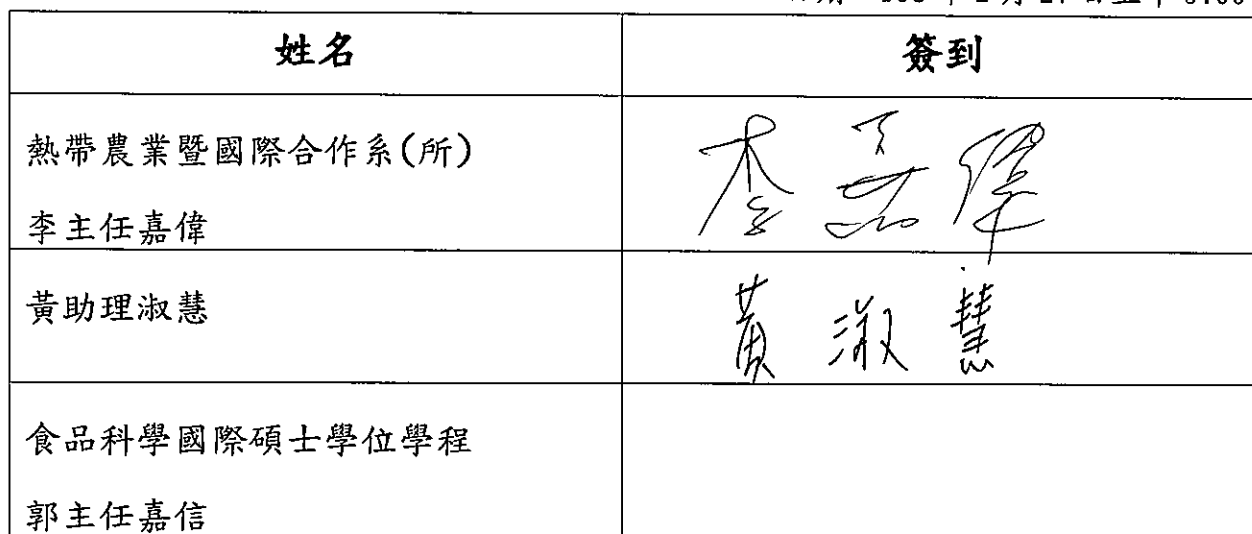 姓名
簽到
熱帶農業暨國際合作系(所)
李主任嘉偉
李嘉偉
黃助理淑慧
黃淑慧
食品科學國際碩士學位學程
郭主任嘉信